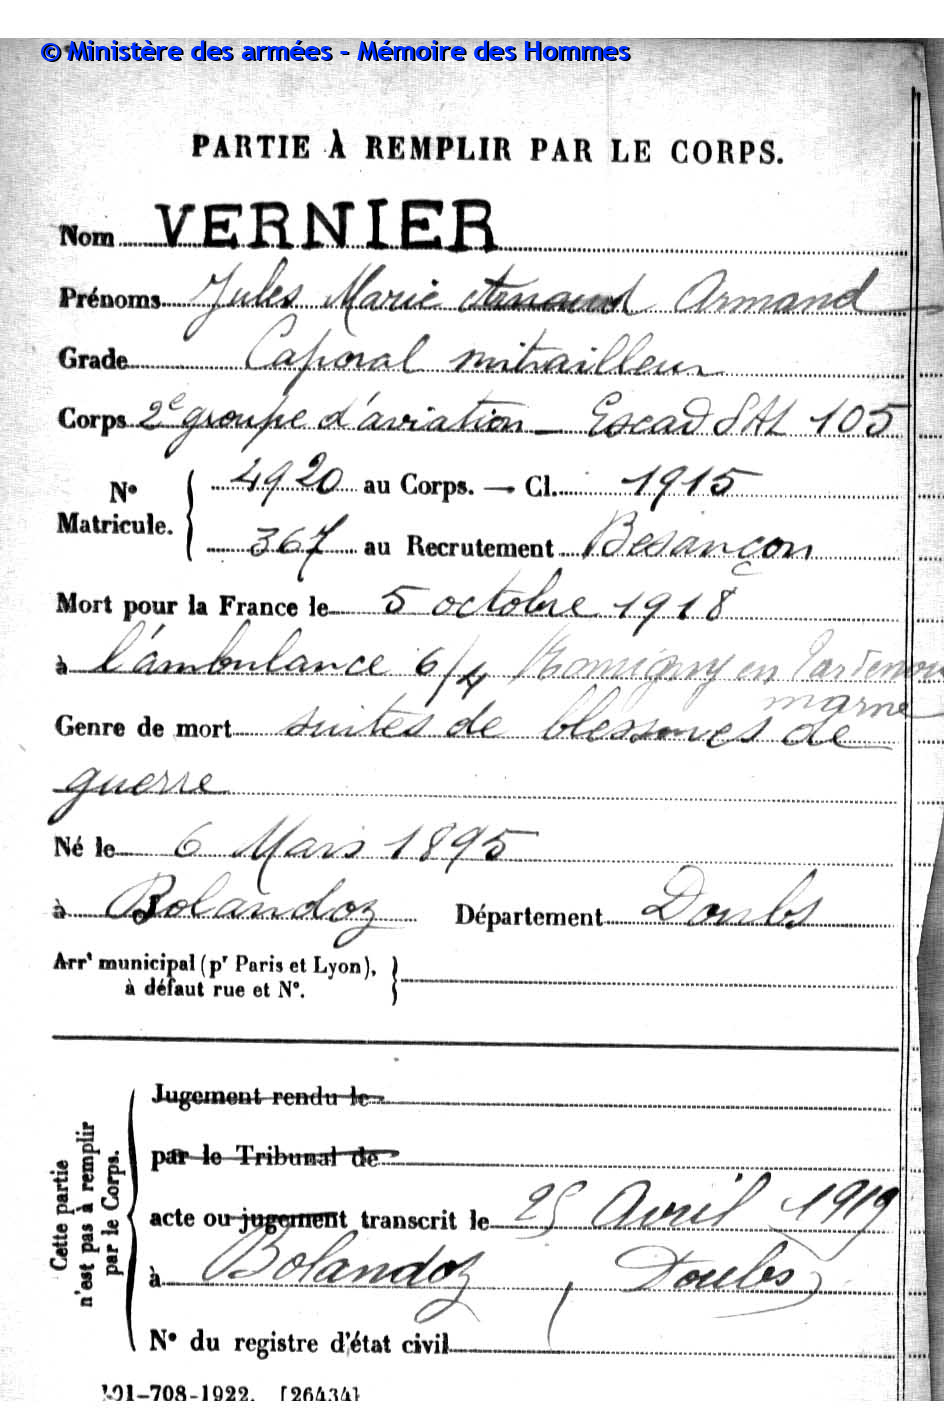 © Ministère des armées - Mémoire des Hommes
PARTIE À REMPLIR PAR LE CORPS.
Nom VERNIER
Prénoms Jules Marie Armand
Grade Caporal mitrailleur
Corps 2e groupe d'aviation - Escad SAL 105
4920 au Corps. — Cl. 1915
N° Matricule.
367 au Recrutement Besançon
Mort pour la France le 5 octobre 1918
à l'ambulance 6/4 Romigny en Tardenois
marne
Genre de mort suites de blessures de
guerre
Né le 6 Mars 1895
à Bolandoz Département Doubs
Arrt municipal (pr Paris et Lyon),
à défaut rue et N°.
Cette partie n'est pas à remplir par le Corps.
Jugement rendu le
par le Tribunal de
acte ou jugement transcrit le 25 Avril 1919
à Bolandoz, Doubs
N° du registre d'état civil
101-708-1922. [26434]